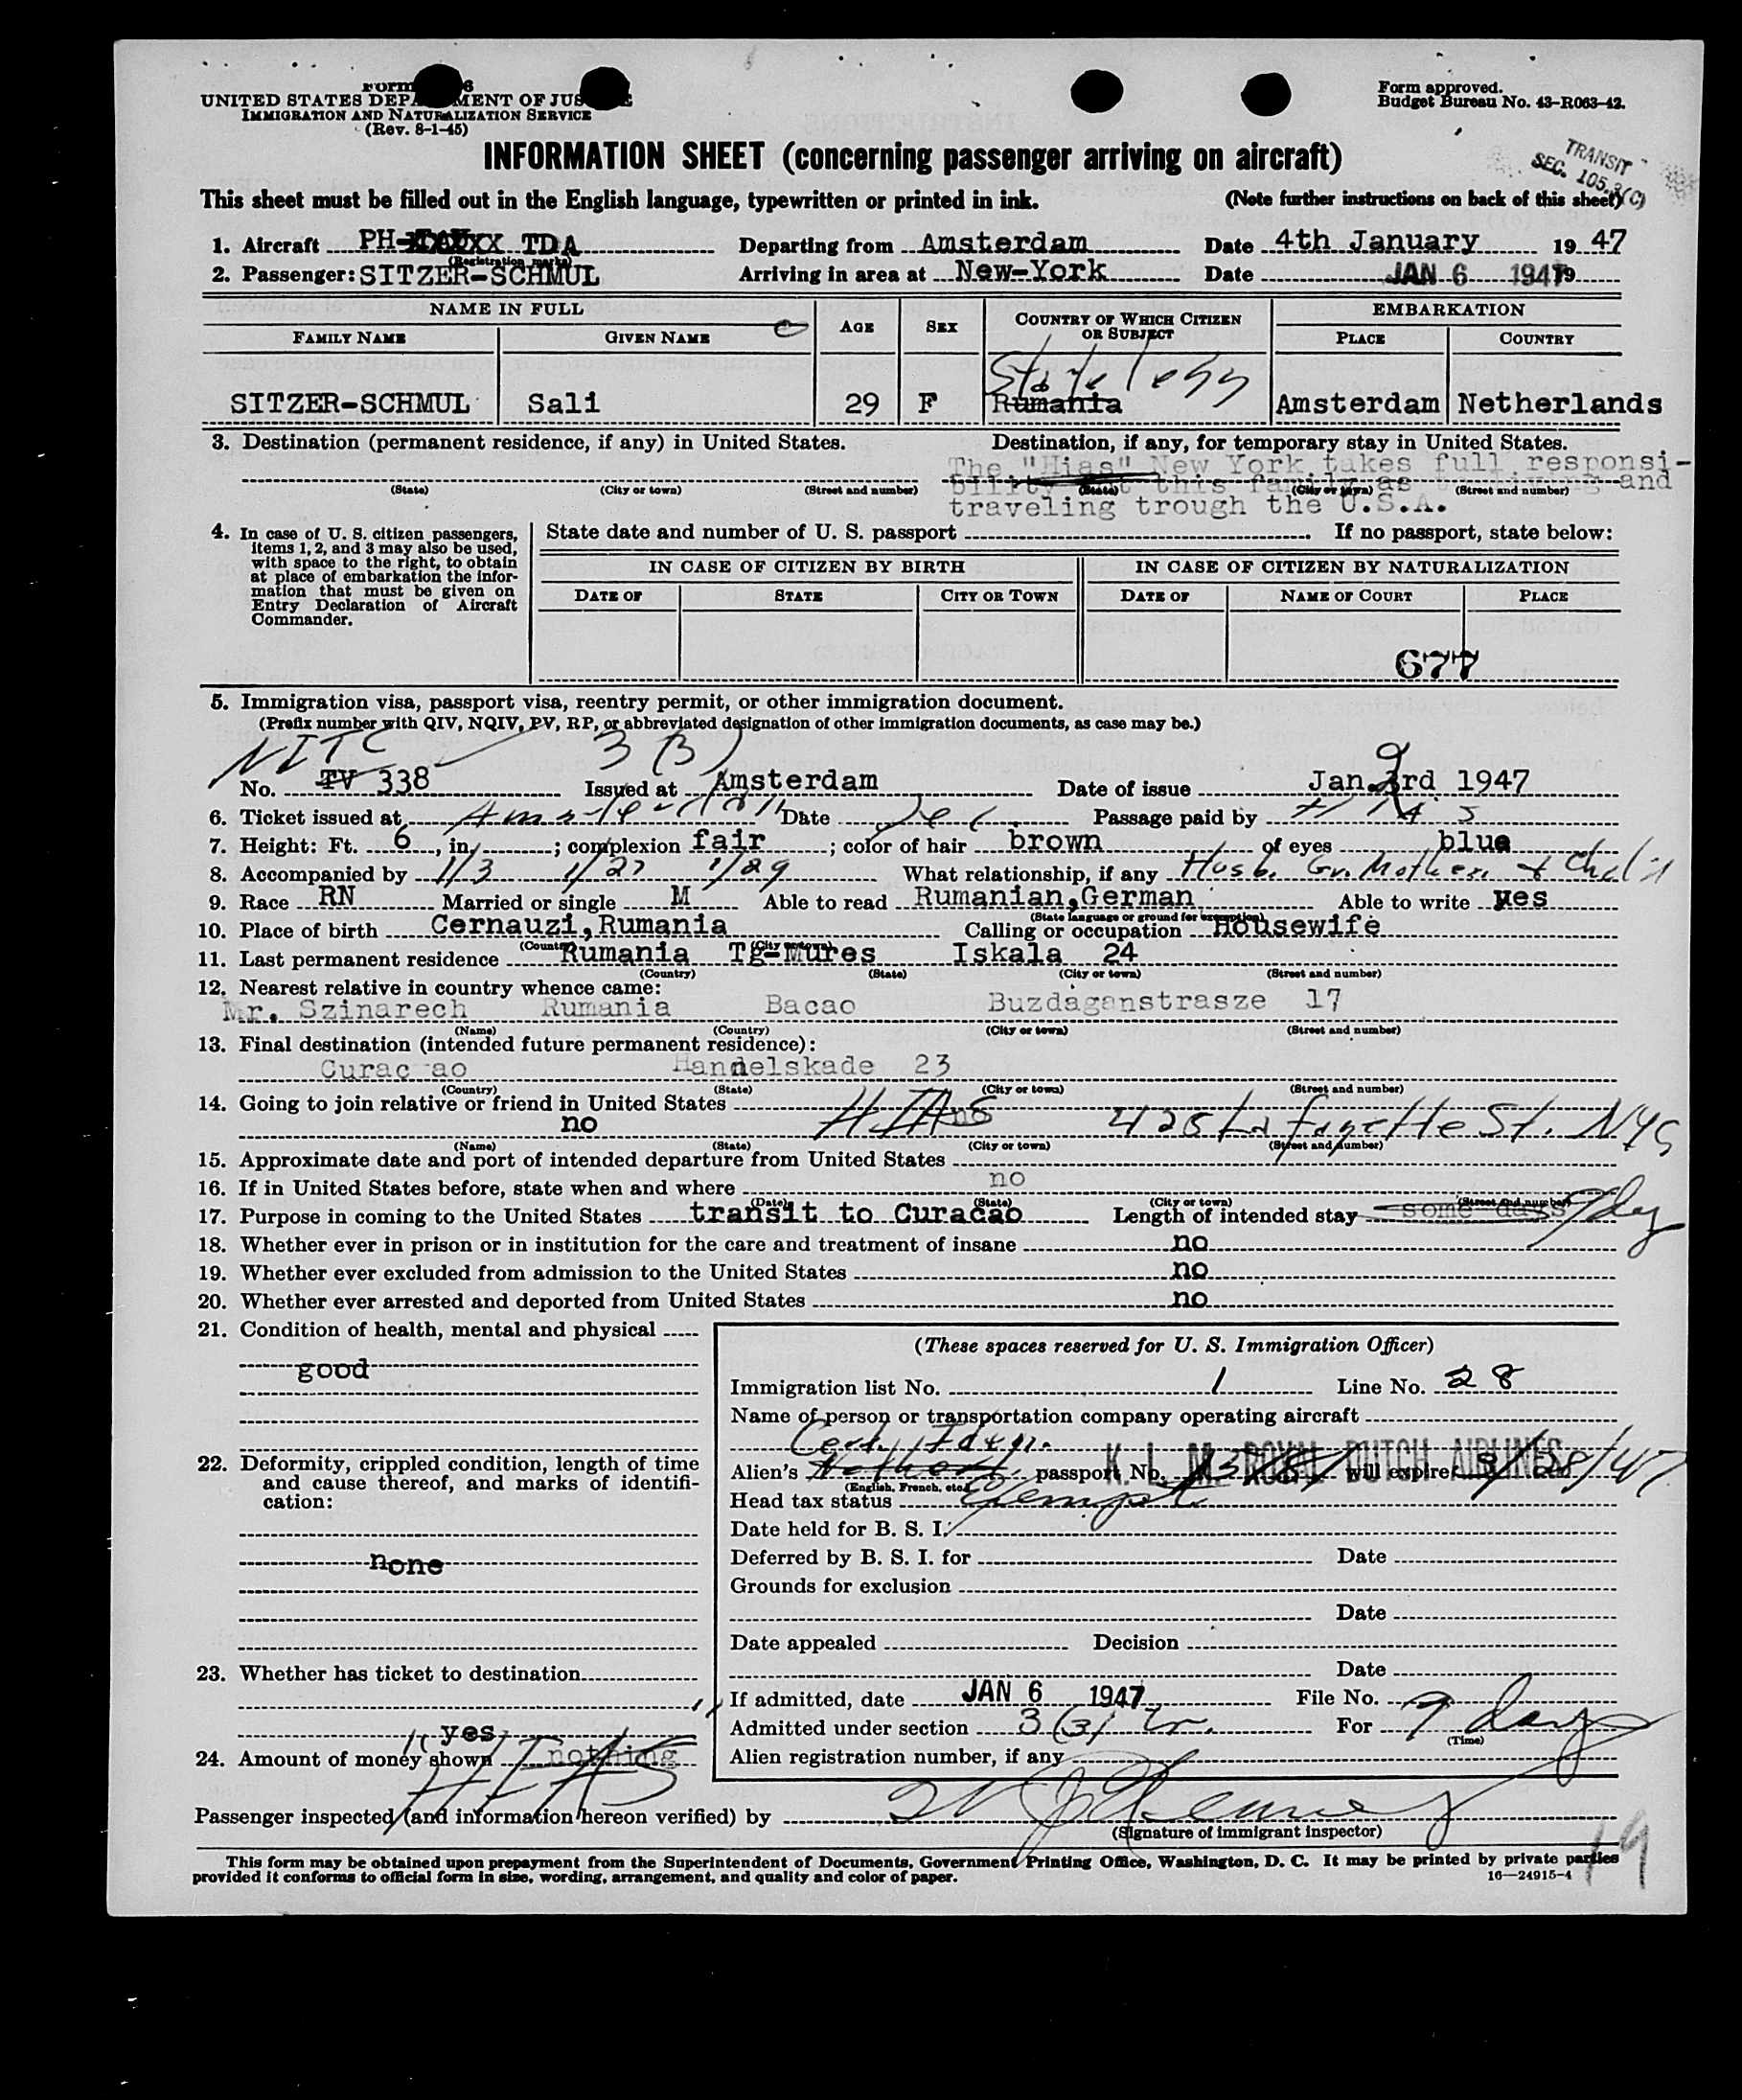 UNITED STATES DEPARTMENT OF JUSTICE
IMMIGRATION AND NATURALIZATION SERVICE
(Rev. 8-1-45)
Form approved.
Budget Bureau No. 43-R063-42.
INFORMATION SHEET (concerning passenger arriving on aircraft)
TRANSIT
SEC. 105.3(C)
This sheet must be filled out in the English language, typewritten or printed in ink. (Note further instructions on back of this sheet)
1. Aircraft PH- TDA Departing from Amsterdam Date 4th January 1947
(Registration marks)
2. Passenger: SITZER-SCHMUL Arriving in area at New-York Date JAN 6 1947 19
NAME IN FULL AGE SEX COUNTRY OF WHICH CITIZEN OR SUBJECT EMBARKATION
FAMILY NAME GIVEN NAME PLACE COUNTRY
Stateless
SITZER-SCHMUL Sali 29 F Rumania Amsterdam Netherlands
3. Destination (permanent residence, if any) in United States. Destination, if any, for temporary stay in United States.
The "Hias" New York takes full responsi-
(State) (City or town) (Street and number) (State) (City or town) (Street and number)
bility this family as living and
traveling trough the U.S.A.
4. In case of U. S. citizen passengers, items 1, 2, and 3 may also be used, with space to the right, to obtain at place of embarkation the information that must be given on Entry Declaration of Aircraft Commander.
State date and number of U. S. passport If no passport, state below:
IN CASE OF CITIZEN BY BIRTH IN CASE OF CITIZEN BY NATURALIZATION
DATE OF STATE CITY OR TOWN DATE OF NAME OF COURT PLACE
677
5. Immigration visa, passport visa, reentry permit, or other immigration document.
(Prefix number with QIV, NQIV, PV, RP, or abbreviated designation of other immigration documents, as case may be.)
NITC 3 (3)
No. TV 338 Issued at Amsterdam Date of issue Jan. 3rd 1947
6. Ticket issued at Amsterdam Date Dec Passage paid by HIAS
7. Height: Ft. 6, in. ; complexion fair ; color of hair brown of eyes blue
8. Accompanied by 1/3 1/27 1/29 What relationship, if any Husb. Gr. Mother + Child
9. Race RN Married or single M Able to read Rumanian, German Able to write yes
(State language or ground for exemption)
10. Place of birth Cernauzi, Rumania Calling or occupation Housewife
(Country) (City or town)
11. Last permanent residence Rumania Tg-Mures Iskala 24
(Country) (State) (City or town) (Street and number)
12. Nearest relative in country whence came:
Mr. Szinarech Rumania Bacao Buzdaganstrasze 17
(Name) (Country) (City or town) (Street and number)
13. Final destination (intended future permanent residence):
Curac ao Handelskade 23
(Country) (State) (City or town) (Street and number)
14. Going to join relative or friend in United States no
no HIAS 425 Lafayette St. NYC
(Name) (State) (City or town) (Street and number)
15. Approximate date and port of intended departure from United States
16. If in United States before, state when and where no
(Date) (State) (City or town) (Street and number)
17. Purpose in coming to the United States transit to Curacao Length of intended stay some days
18. Whether ever in prison or in institution for the care and treatment of insane no
19. Whether ever excluded from admission to the United States no
20. Whether ever arrested and deported from United States no
21. Condition of health, mental and physical
good
22. Deformity, crippled condition, length of time and cause thereof, and marks of identification:
none
23. Whether has ticket to destination
yes
24. Amount of money shown nothing
HIAS
(These spaces reserved for U. S. Immigration Officer)
Immigration list No. 1 Line No. 28
Name of person or transportation company operating aircraft
K. L. M. ROYAL DUTCH AIRLINES
Cert. Iden.
Alien's passport No. will expire 3/28/47
(English, French, etc.)
Head tax status Exempt
Date held for B. S. I.
Deferred by B. S. I. for Date
Grounds for exclusion
Date
Date appealed Decision
Date
If admitted, date JAN 6 1947 File No.
Admitted under section 3(3) tr. For 9 days
(Time)
Alien registration number, if any
Passenger inspected (and information hereon verified) by
(Signature of immigrant inspector)
19
This form may be obtained upon prepayment from the Superintendent of Documents, Government Printing Office, Washington, D. C. It may be printed by private parties
provided it conforms to official form in size, wording, arrangement, and quality and color of paper. 16—24915-4